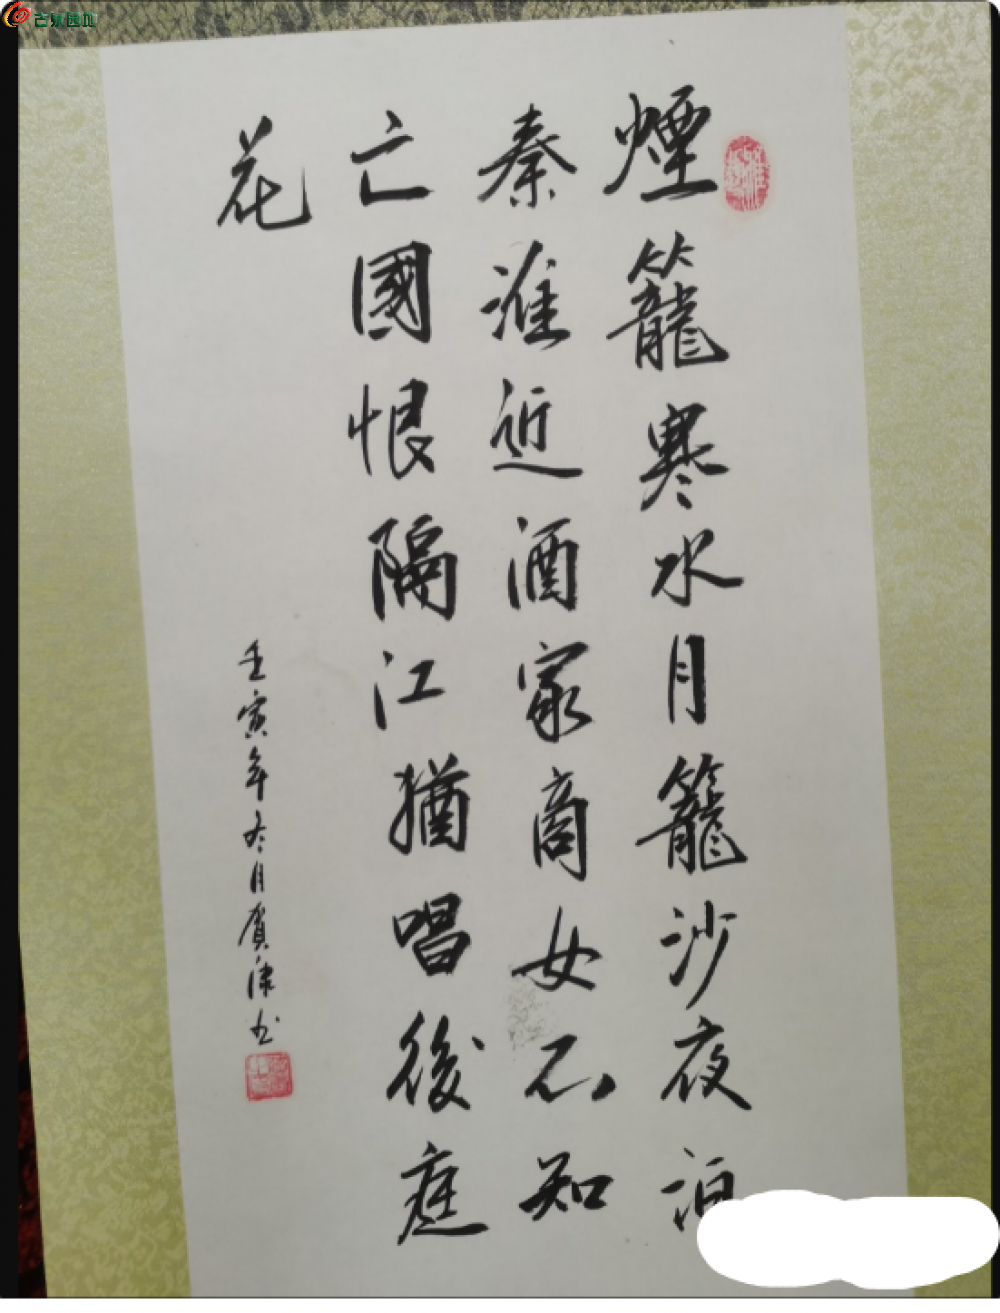 煙籠寒水月籠沙夜泊
秦淮近酒家商女不知
亡國恨隔江猶唱後庭
花
壬寅年冬月賓津书